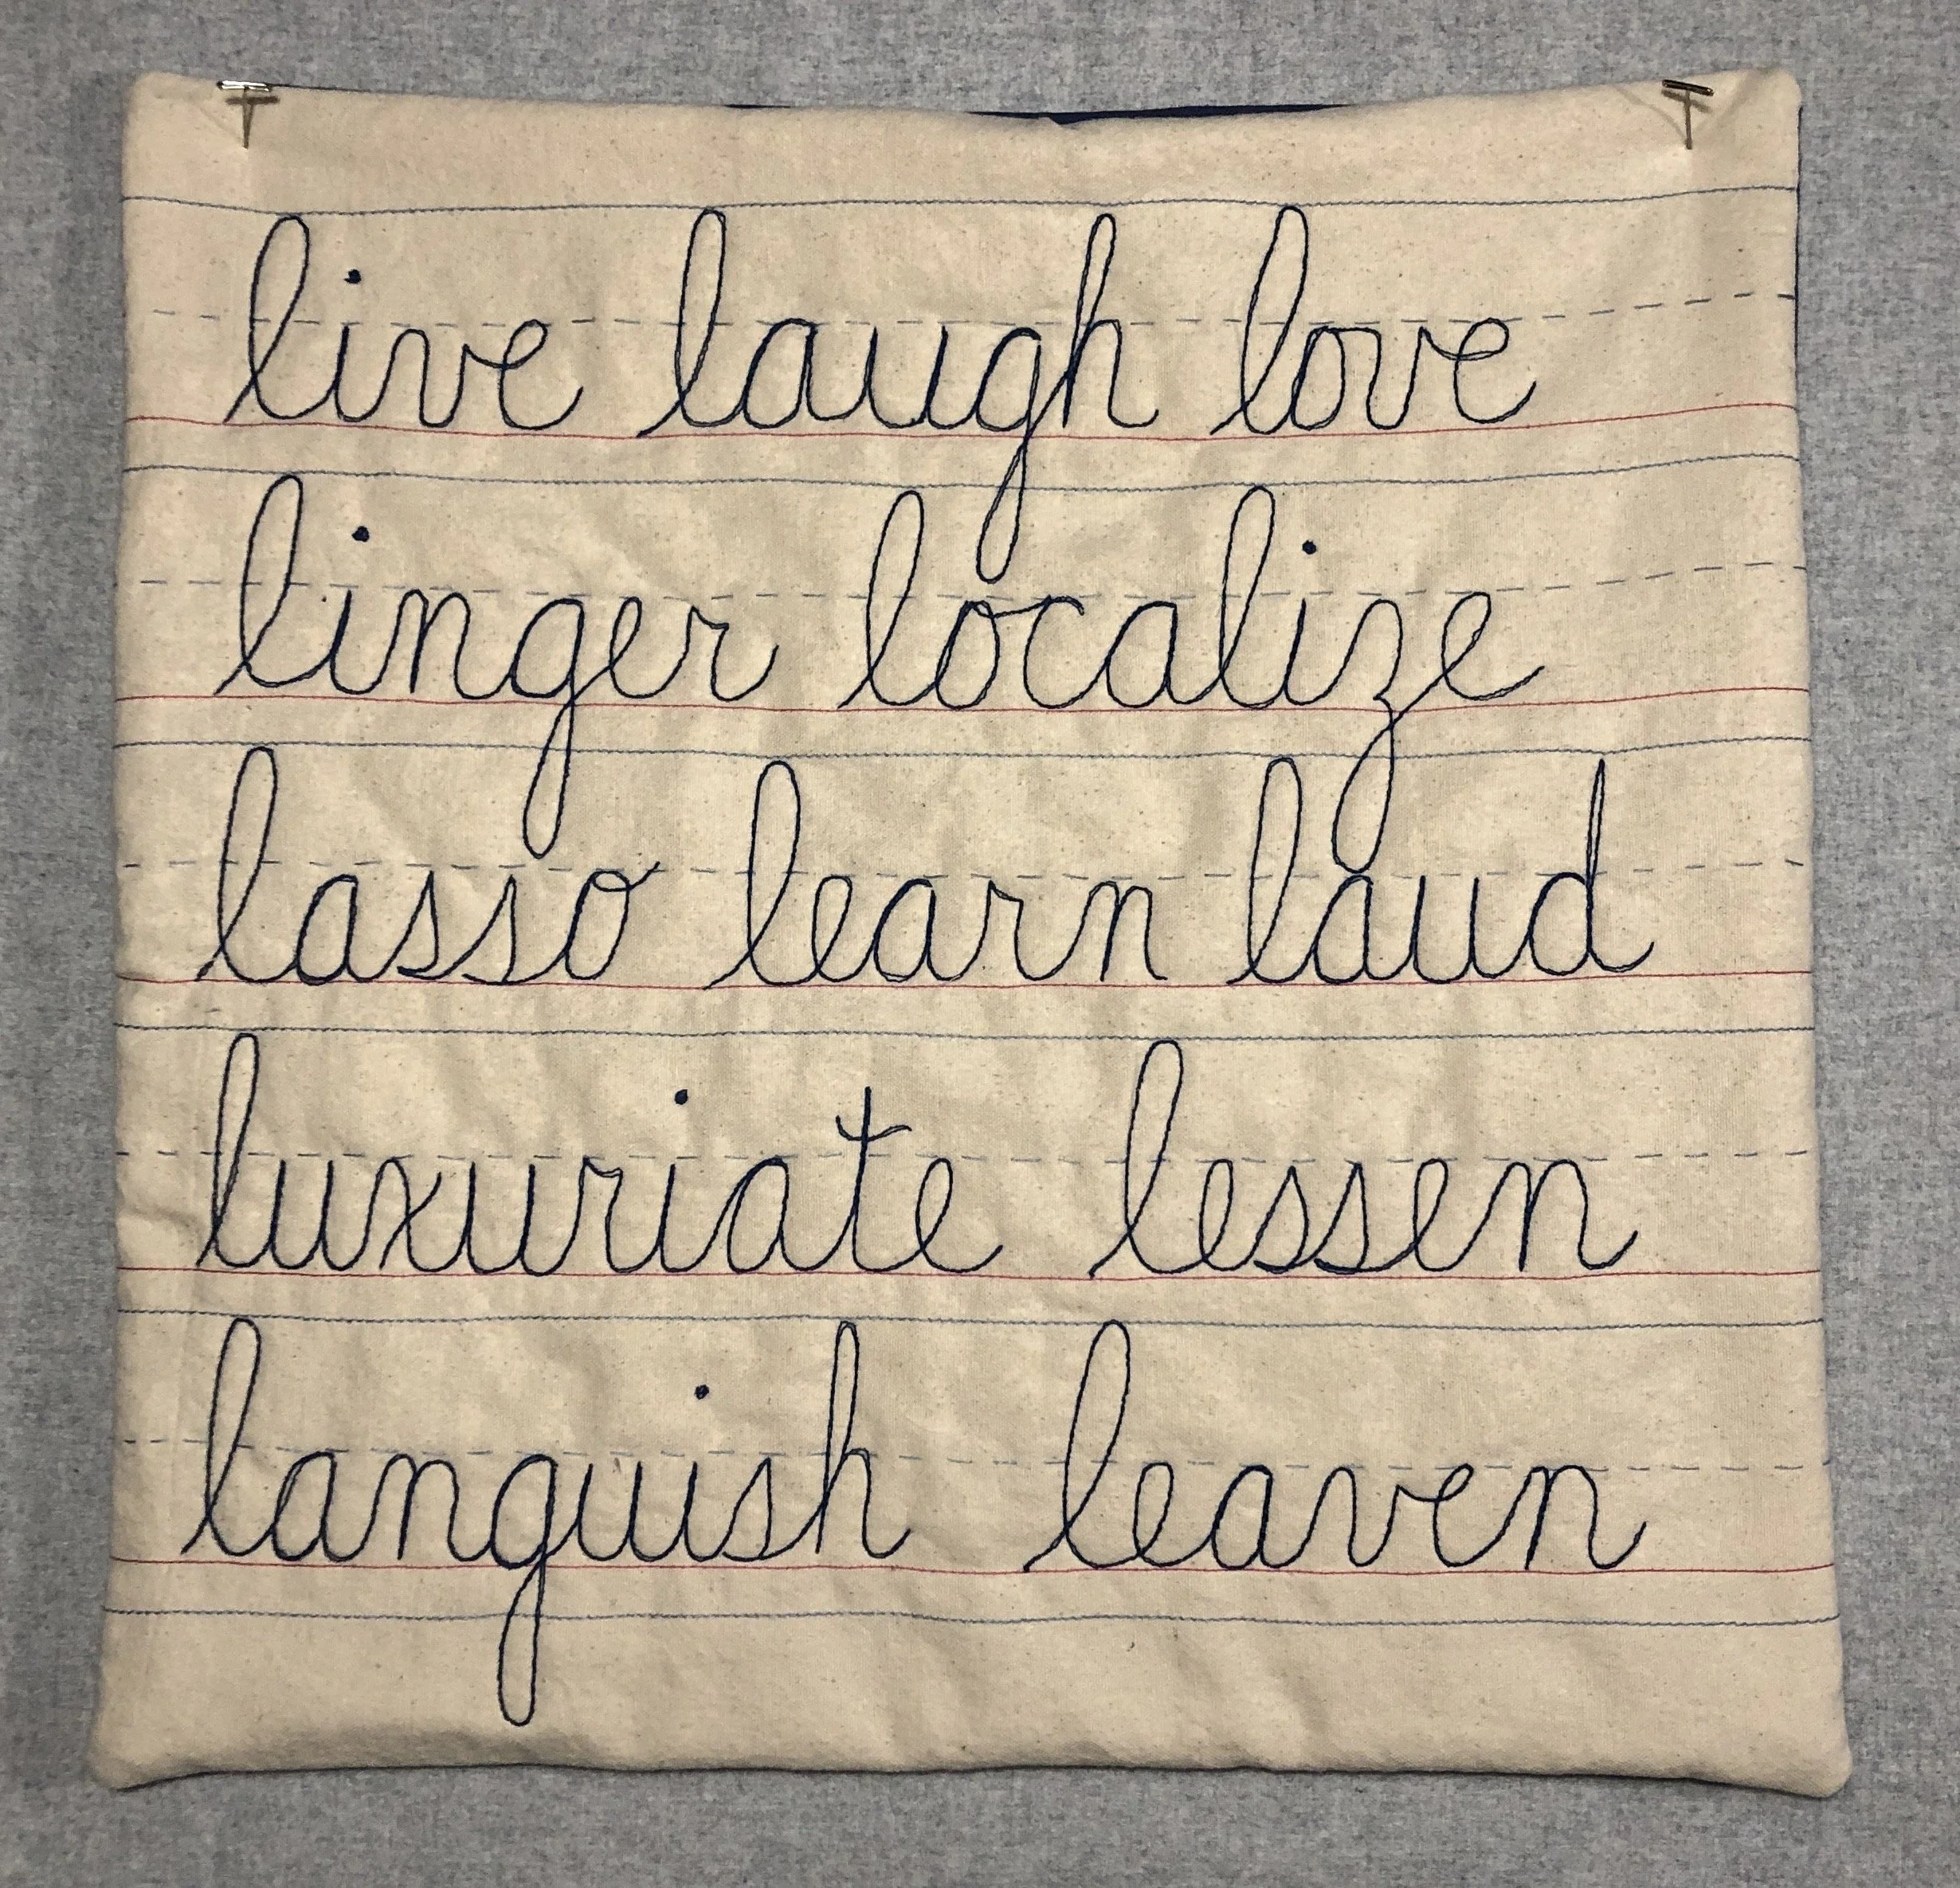 live laugh love
linger localize
lasso learn laud
luxuriate lessen
languish leaven